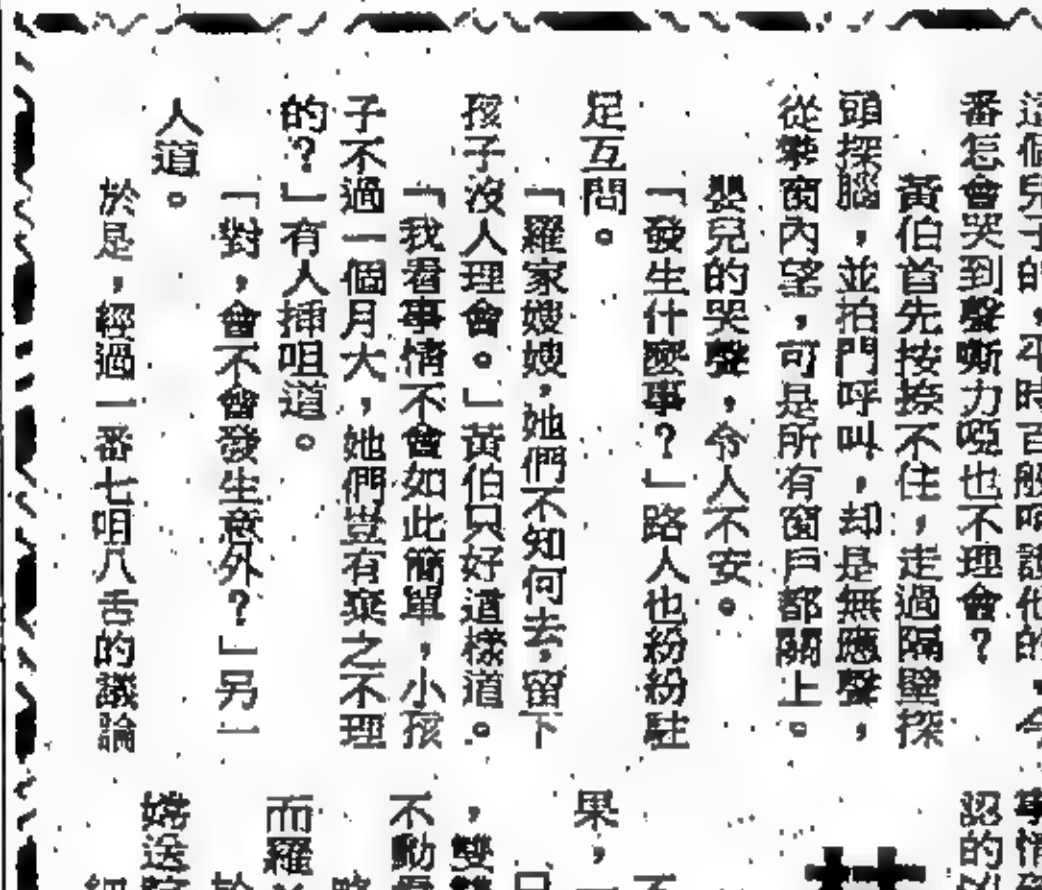 這個兒子的，平時百般呵護他的，今
番怎會哭到聲嘶力啞也不理會？
黃伯首先按捺不住，走過隔壁探
頭探腦，並拍門呼叫，却是無應聲，
從窗內望，可是所有窗戶都關上。
嬰兒的哭聲，令人不安。
「發生什麼事？」路人也紛紛駐
足互問。
「羅家嫂嫂，她們不知何去，留下
孩子沒人理會。」黃伯只好這樣道。
「我看事情不會如此簡單，小孩
子不過一個月大，她們豈有棄之不理
的？」有人插咀道。
「對，會不會發生意外？」另一
人道。
於是，經過一番七咀八舌的議論
事情
認的
果，
，雙
不動
而羅
嬌送